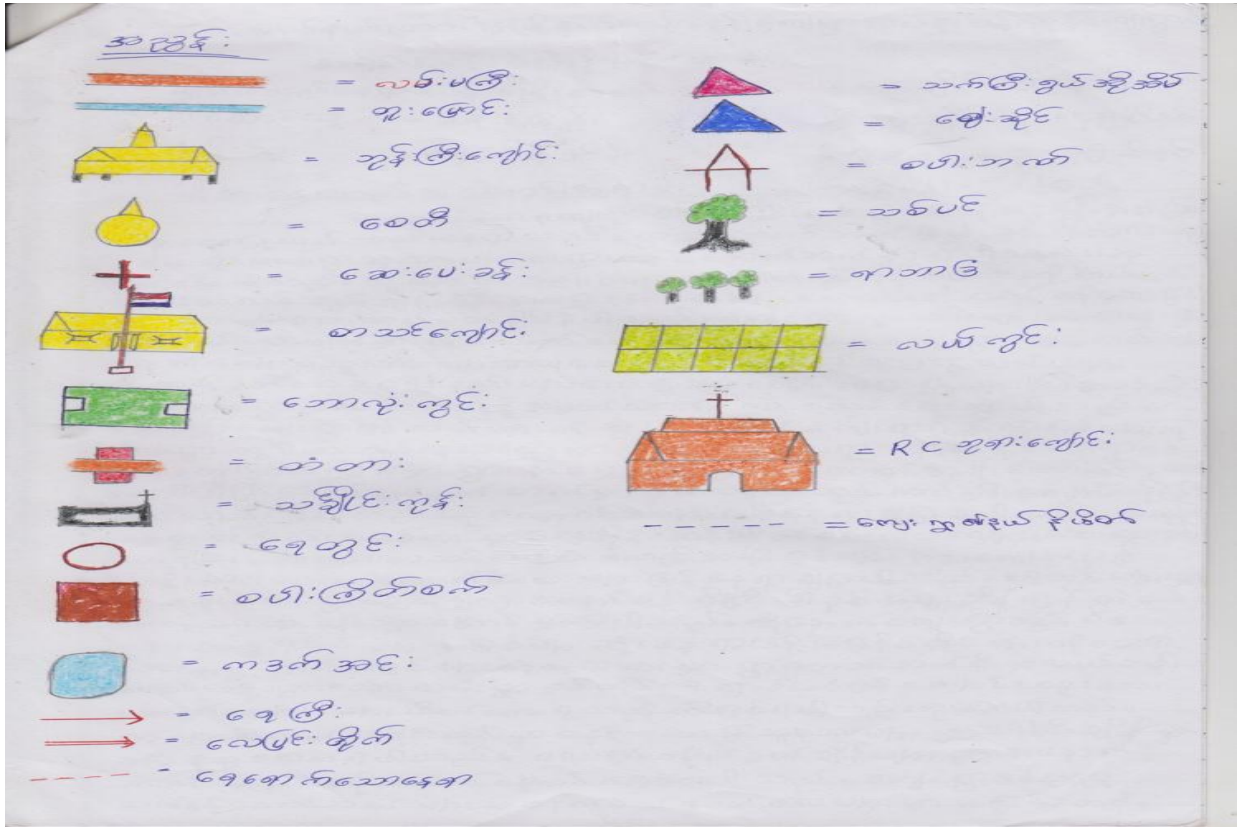 အညွှန်း
= လမ်းမကြီး
= တူးမြောင်း
= ဘုန်းကြီးကျောင်း
= စေတီ
= ဆေးပေးခန်း
= စာသင်ကျောင်း
= ဘောလုံးကွင်း
= တံတား
= သင်္ချိုင်းကုန်း
= ရေတွင်း
= စပါးကြိတ်စက်
= ကဒက်အင်း
= ရေကြီး
= လေပြင်းတိုက်
- ရေရောက်သောနေရာ
= သက်ကြီးရွယ်အိုအိမ်
= ဈေးဆိုင်
= စပါးဘဏ်
= သစ်ပင်
= ရာဘာခြံ
= လယ်ကွင်း
= RC ဘုရားကျောင်း
= ဘေး